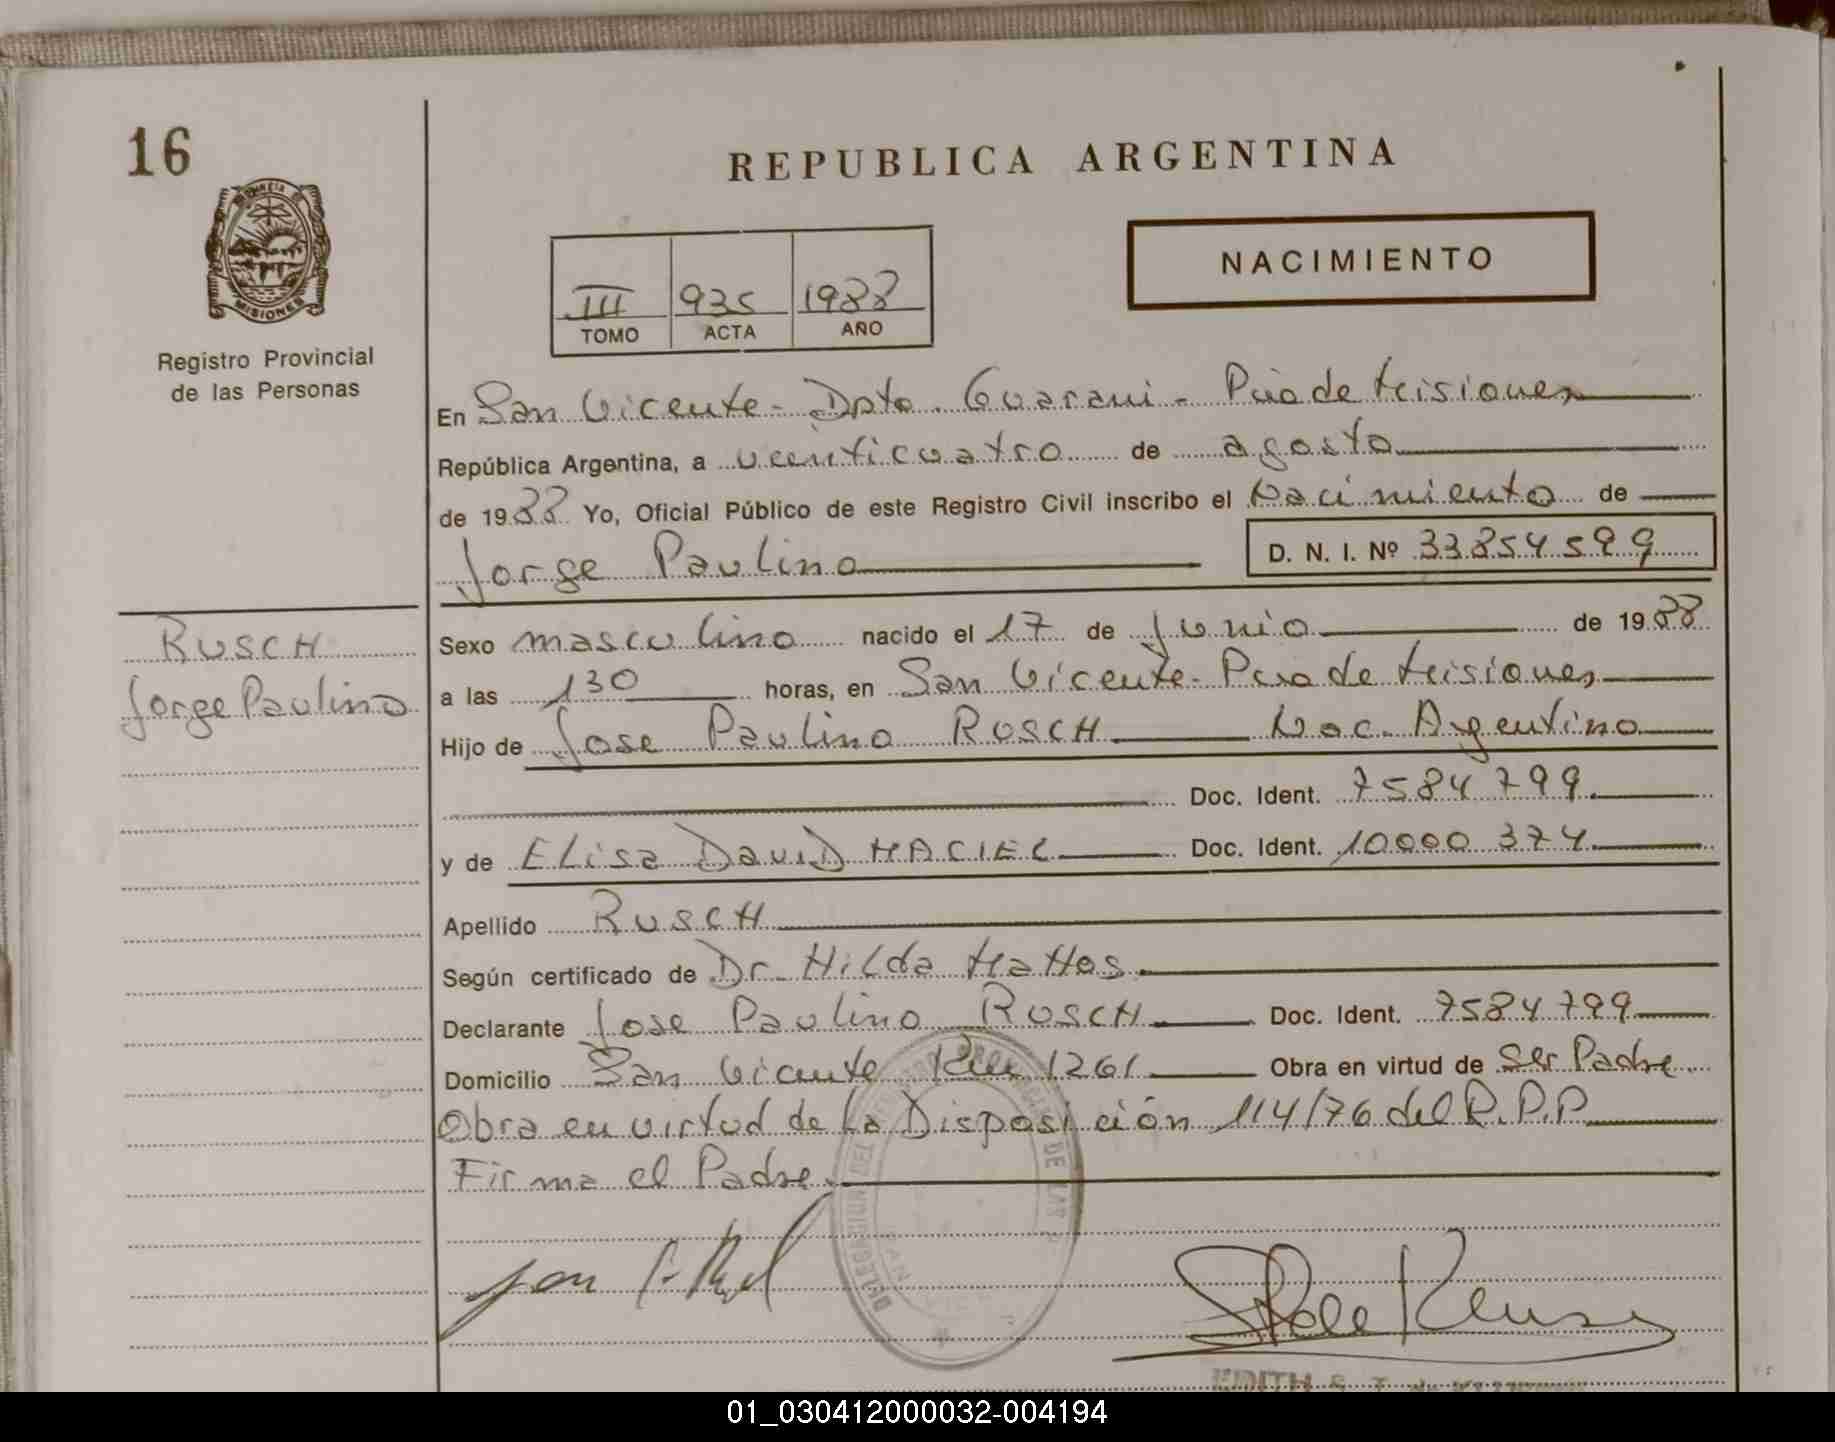 16
REPUBLICA ARGENTINA
PROVINCIA DE
MISIONES
Registro Provincial
de las Personas
NACIMIENTO
III 935 1988
TOMO ACTA AÑO
En San Vicente - Dpto. Guarani - Pcia de Misiones
República Argentina, a veinticuatro de agosto
de 1988 Yo, Oficial Público de este Registro Civil inscribo el Nacimiento de
Jorge Paulino D. N. I. Nº 33854599
RUSCH
Jorge Paulino
Sexo masculino nacido el 17 de Junio de 1988
a las 130 horas, en San Vicente - Pcia de Misiones
Hijo de Jose Paulino RUSCH Nac. Argentino
Doc. Ident. 7584799
y de Elisa DaviD MACIEL Doc. Ident. 10000374
Apellido RUSCH
Según certificado de Dr. Hilda Mattos
Declarante Jose Paulino RUSCH Doc. Ident. 7584799
Domicilio San Vicente Km 1261 Obra en virtud de Ser Padre
Obra en virtud de La Disposición 114/76 del R.P.P
Firma el Padre.
DELEGACION DEL REGISTRO PROVINCIAL DE LAS
SAN
EDITH
01_030412000032-004194